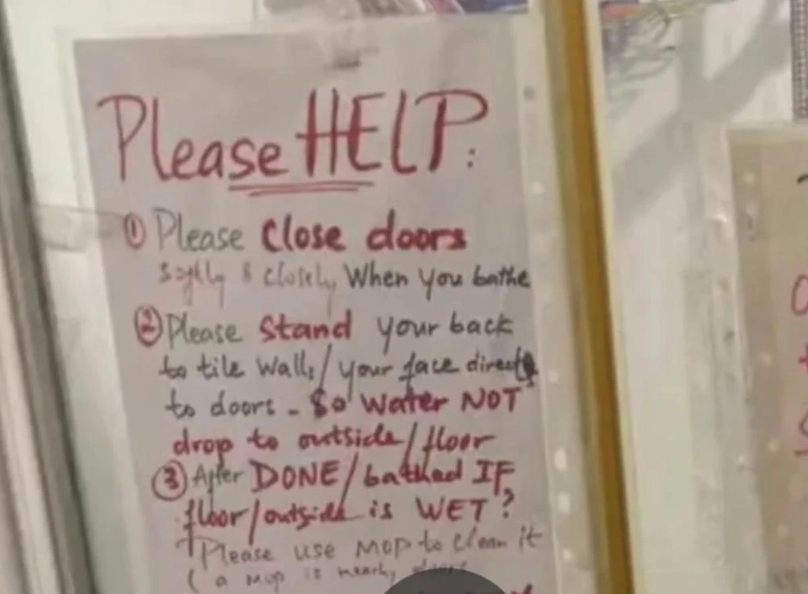 Please HELP:
① Please close doors
& closely When you bathe
② Please stand your back
to tile walls/your face direct
to doors - So water NOT
drop to outside/floor
③ After DONE/bathed IF
floor/outside is WET?
Please use MOP to clean it
( a mop is nearby